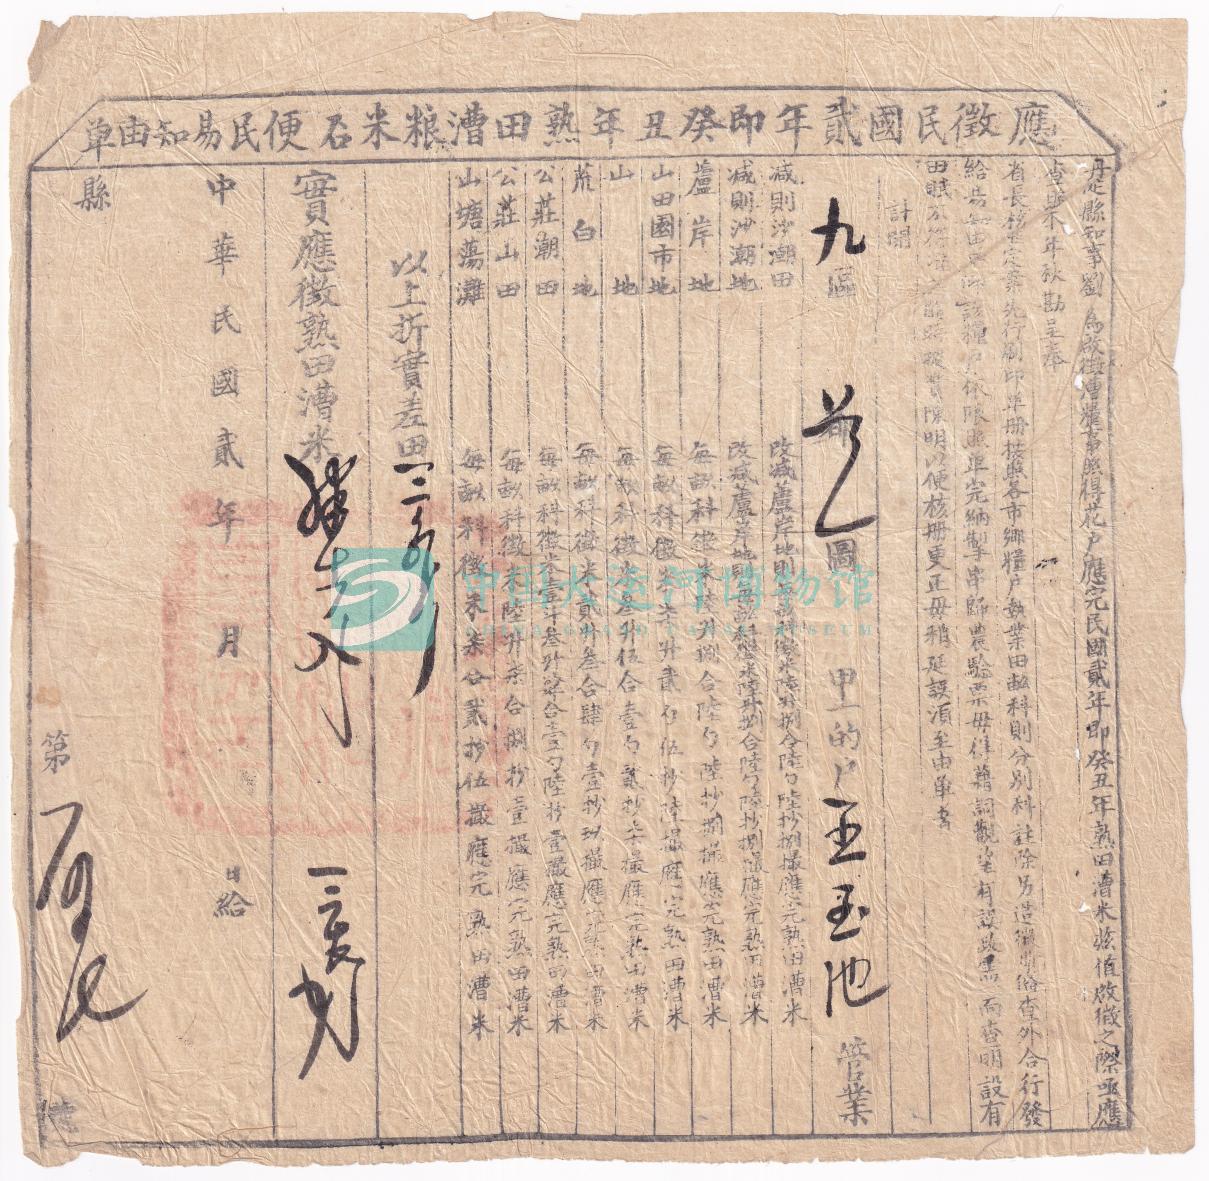 應徵民國貳年即癸丑年熟田漕粮米石便民易知由單
丹徒縣知事劉 為啟徵漕糧事照得花戶應完民國貳年即癸丑年熟田漕米茲值啟徵之際亟應
查照本年秋勘呈奉
省長核定業先行刷印單冊按照各市鄉糧戶執業田畝科則分別科註除另造徵冊備查外合行發
給易知由單仰該糧戶依限照單完納掣串歸農驗票毋得藉詞觀望有誤政需而查明設有
田賦不符准即臨時據實陳明以便核冊更正毋稍延誤須至由單者
計開
九區 都 圖 甲的戶 王玉池 管業
減則沙潮田 改減蘆岸地則每畝科徵米陸升捌合陸勺陸抄捌撮應完熟田漕米
減則沙潮地 改減蘆岸地則每畝科徵米陸升捌合陸勺陸抄捌撮應完熟田漕米
蘆岸地 每畝科徵米陸升捌合陸勺陸抄捌撮應完熟田漕米
山田園市地 每畝科徵米柒升貳勺伍抄陸撮應完熟田漕米
山地 每畝科徵米叁升伍合壹勺貳抄柒撮應完熟田漕米
荒白地 每畝科徵米貳升叁合肆勺壹抄玖撮應完熟田漕米
公莊潮田 每畝科徵米壹斗叁升柒合壹勺陸抄壹撮應完熟田漕米
公莊山田 每畝科徵米陸升柒合捌抄壹撮應完熟田漕米
山塘蕩灘 每畝科徵米柒合貳抄伍撮應完熟田漕米
以上折實差田
實應徵熟田漕米
中華民國貳年 月 日給
縣 第 號
中国大运河博物馆
CHINA GRAND CANAL MUSEUM